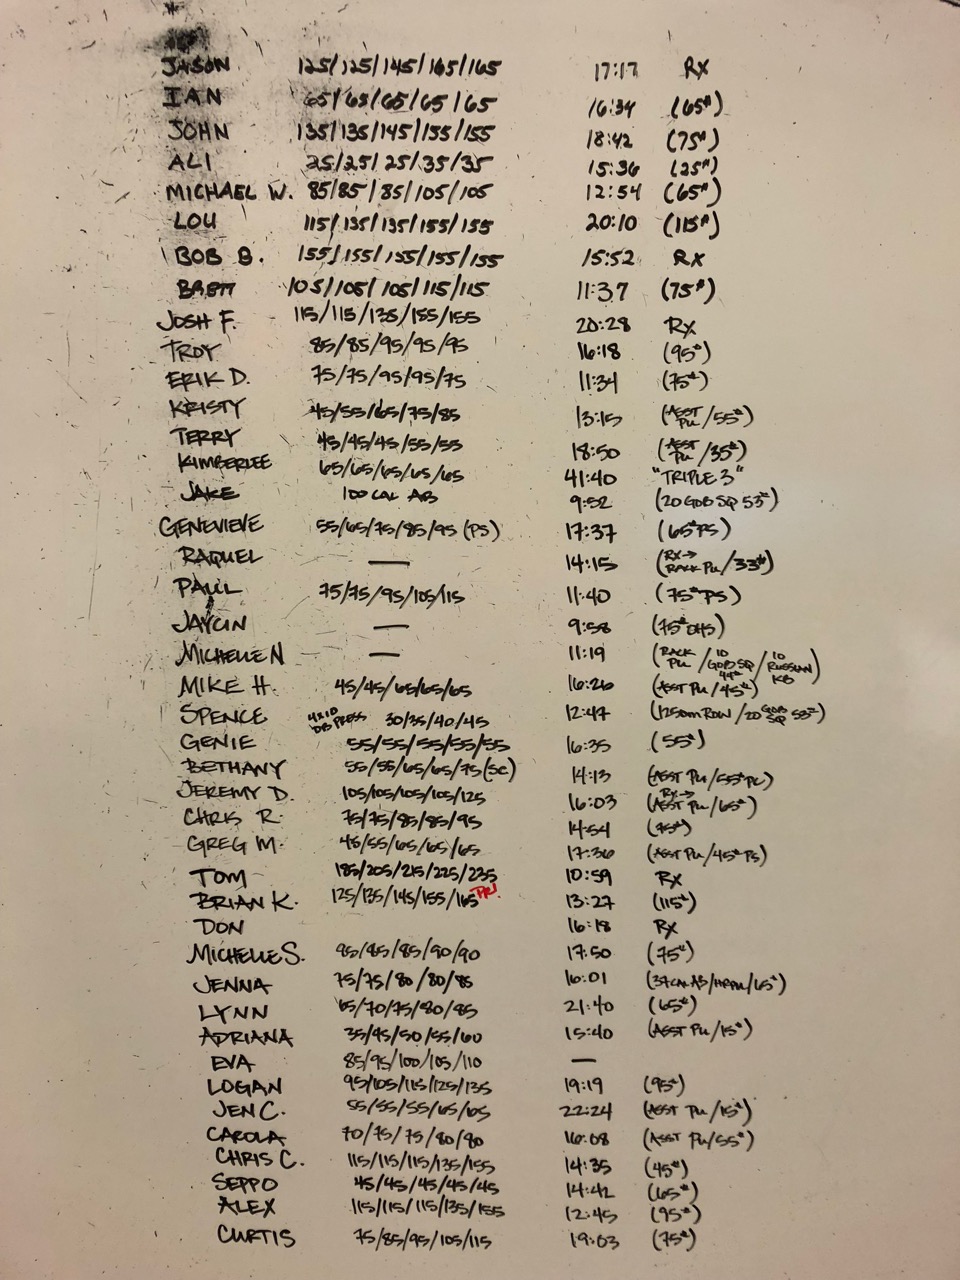 JASON 125/125/145/165/165 17:17 RX
IAN 65/65/65/65/65 16:34 (65#)
JOHN 135/135/145/155/155 18:42 (75#)
ALI 25/25/25/35/35 15:36 (25#)
MICHAEL W. 85/85/85/105/105 12:54 (65#)
LOU 115/135/135/155/155 20:10 (115#)
BOB B. 155/155/155/155/155 15:52 RX
BRETT 105/105/105/115/115 11:37 (75#)
JOSH F. 115/115/135/155/155 20:28 RX
TROY 85/85/95/95/95 16:18 (95#)
ERIK D. 75/75/95/95/75 11:34 (75#)
KRISTY 45/55/65/75/85 13:15 (ASST PU/55#)
TERRY 45/45/45/55/55 18:50 (ASST PU/35#)
KIMBERLEE 65/65/65/65/65 41:40 "TRIPLE 3"
JAKE 100 CAL AB 9:52 (20 GOB SQ 53#)
GENEVIEVE 55/65/75/85/95 (PS) 17:37 (65# PS)
RAQUEL — 14:15 (RX→ RACK PU/33#)
PAUL 75/75/95/105/115 11:40 (75# PS)
JAYCIN — 9:58 (75# OHS)
MICHELLE N — 11:19 (RACK PU/10 GOB SQ 44#/10 RUSSIAN KB)
MIKE H. 45/45/65/65/65 16:26 (ASST PU/45#)
SPENCE 4x10 DB PRESS 30/35/40/45 12:47 (1250m ROW/20 GOB SQ 53#)
GENIE 55/55/55/55/55 16:35 (55#)
BETHANY 55/55/65/65/75 (SC) 14:13 (ASST PU/55# PC)
JEREMY D. 105/105/105/105/125 16:03 (RX→ ASST PU/65#)
CHRIS R. 75/75/85/85/95 14:54 (75#)
GREG M. 45/55/65/65/65 17:36 (ASST PU/45# PS)
TOM 185/205/215/225/235 10:59 RX
BRIAN K. 125/135/145/155/165 PR! 13:27 (115#)
DON 16:18 RX
MICHELLE S. /85/85/90/90 17:50 (75#)
JENNA 75/75/80/80/85 16:01 (37 CAL AB/HRPU/65#)
LYNN 65/70/75/80/85 21:40 (65#)
ADRIANA 35/45/50/55/60 15:40 (ASST PU/15#)
EVA 85/95/100/105/110 —
LOGAN 95/105/115/125/135 19:19 (95#)
JEN C. 55/55/55/65/65 22:24 (ASST PU/15#)
CAROLA 70/75/75/80/80 16:08 (ASST PU/55#)
CHRIS C. 115/115/115/135/155 14:35 (45#)
SEPPO 45/45/45/45/45 14:42 (65#)
ALEX 115/115/115/135/155 12:45 (95#)
CURTIS 75/85/95/105/115 19:03 (75#)